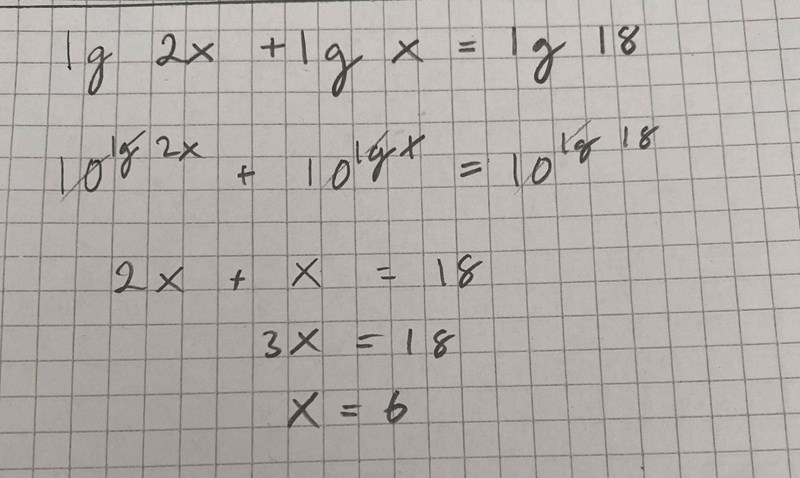 lg 2x + lg x = lg 18
10^lg 2x + 10^lg x = 10^lg 18
2x + x = 18
3x = 18
x = 6